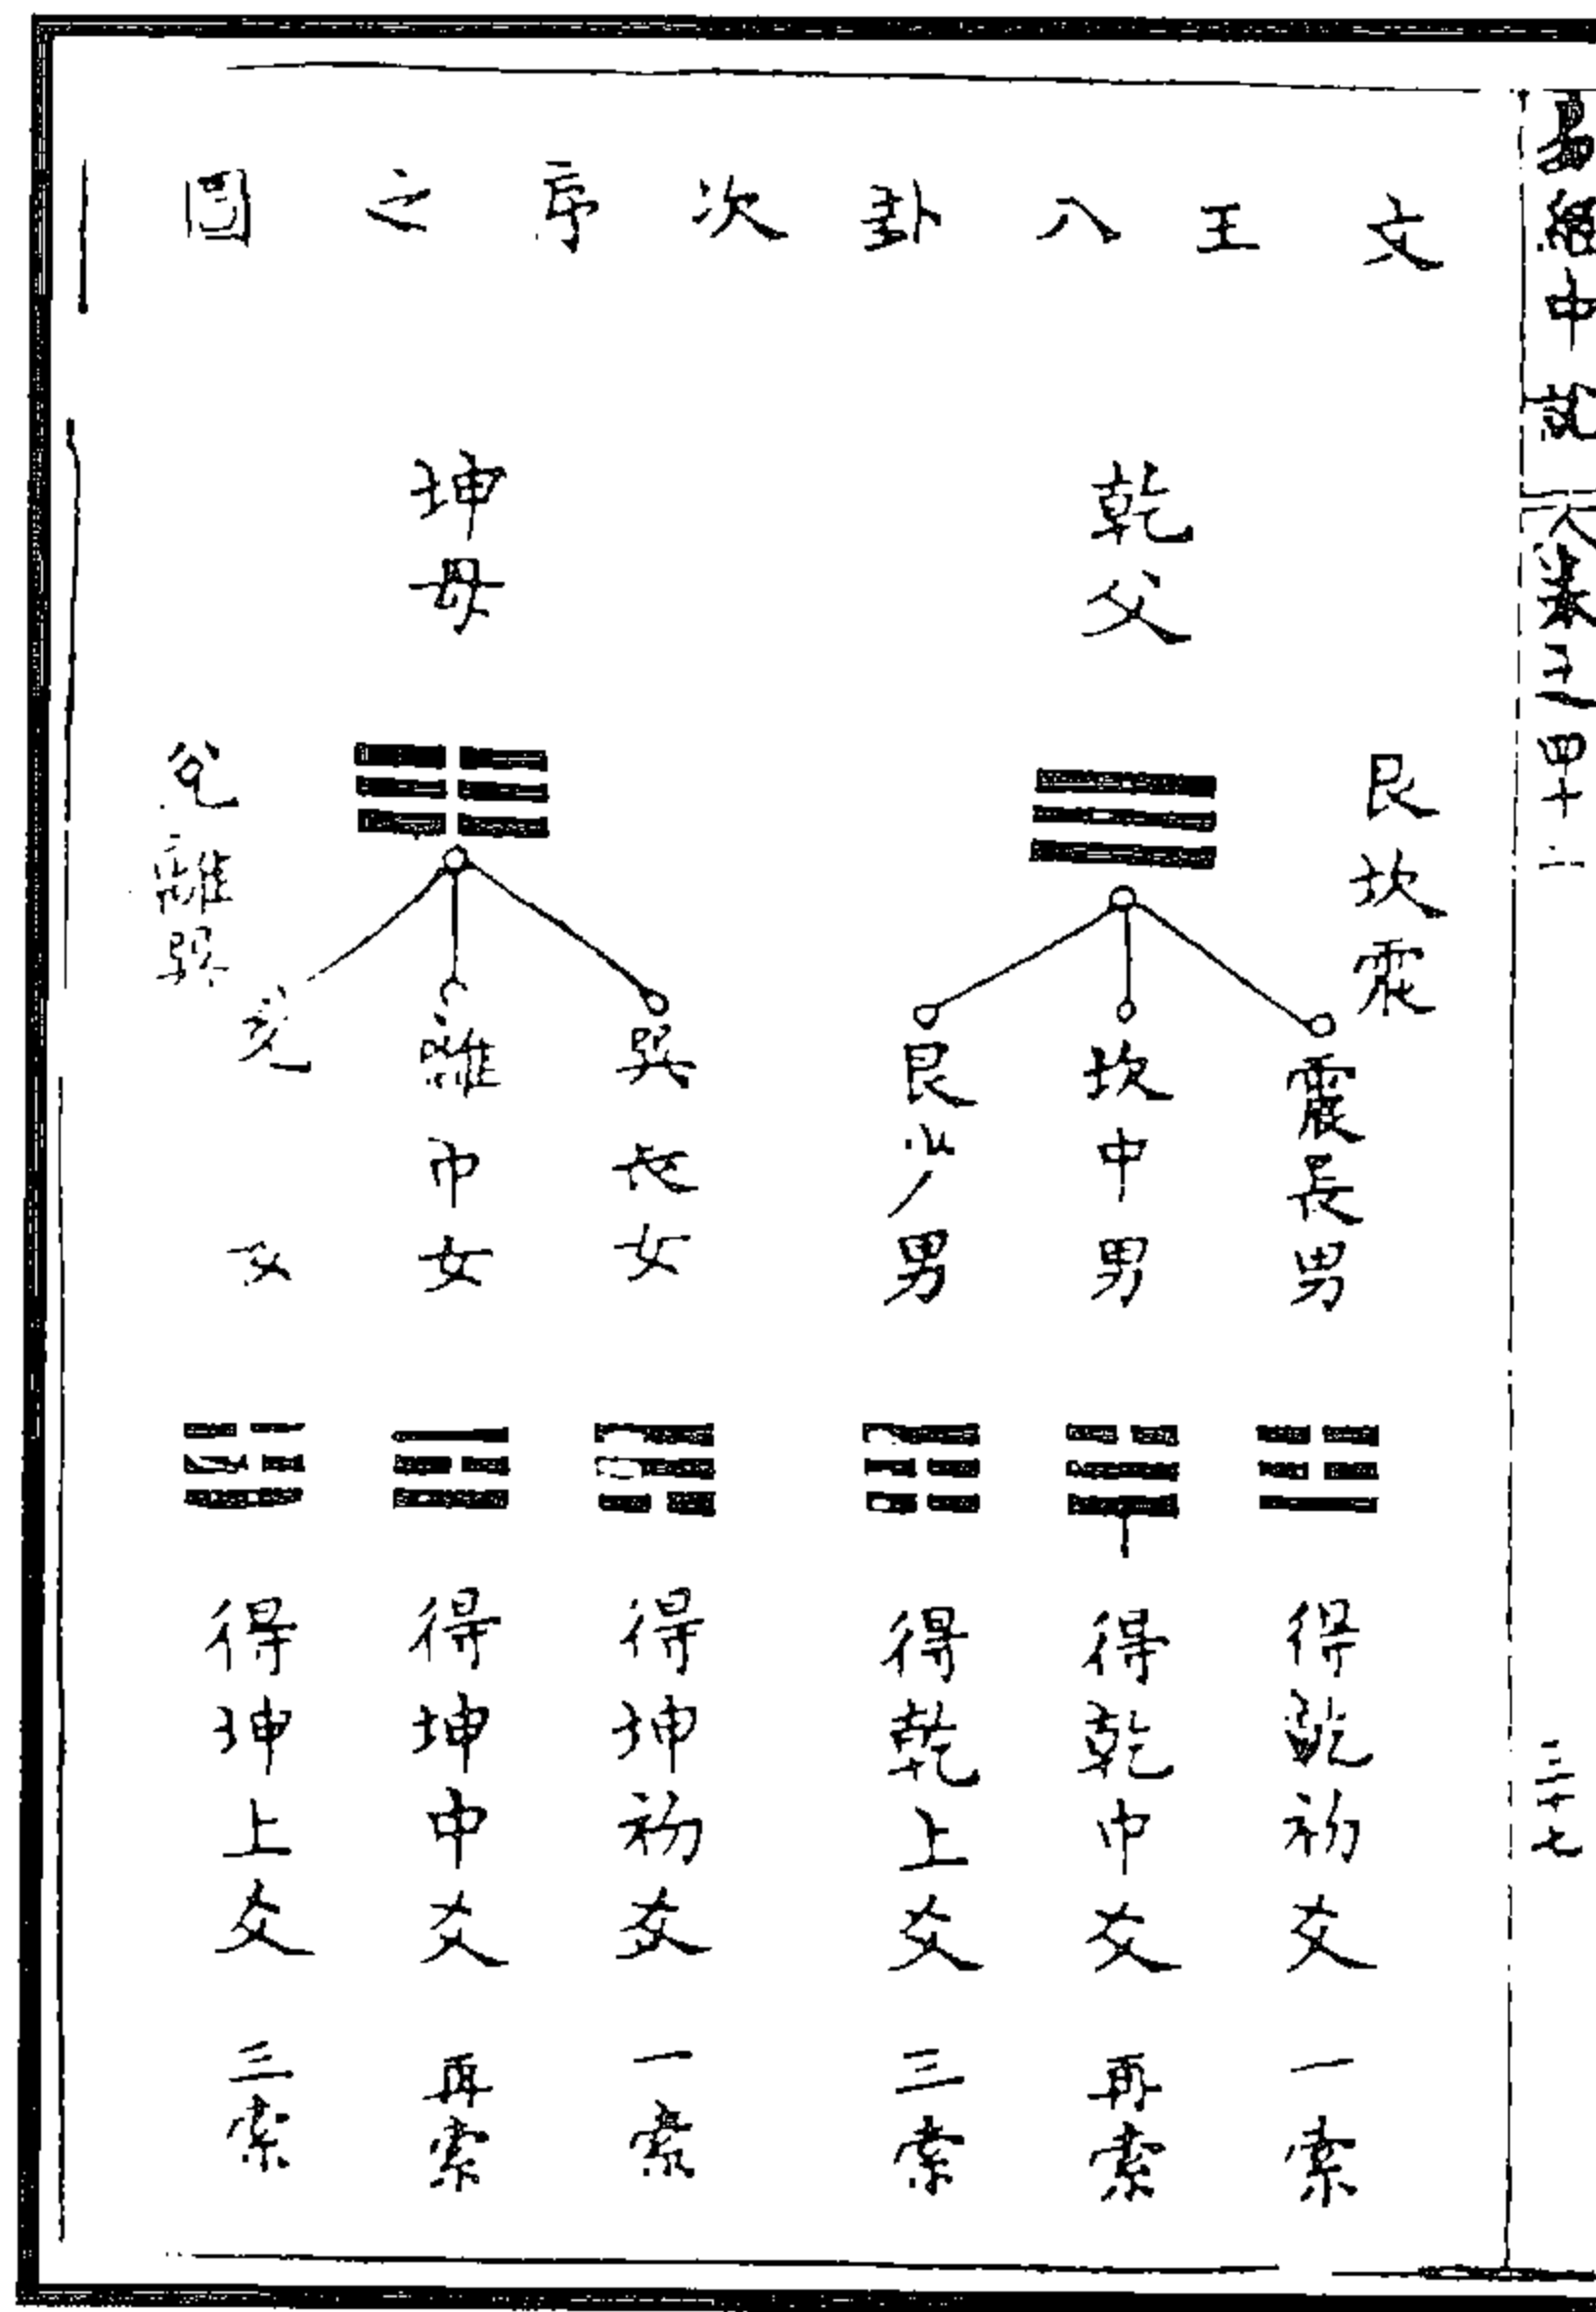 文王八卦次序之圖
乾父
艮坎震
震長男
得乾初爻
一索
坎中男
得乾中爻
再索
艮少男
得乾上爻
三索
坤母
兌離巽
巽長女
得坤初爻
一索
離中女
得坤中爻
再索
兌女
得坤上爻
三索
三十七